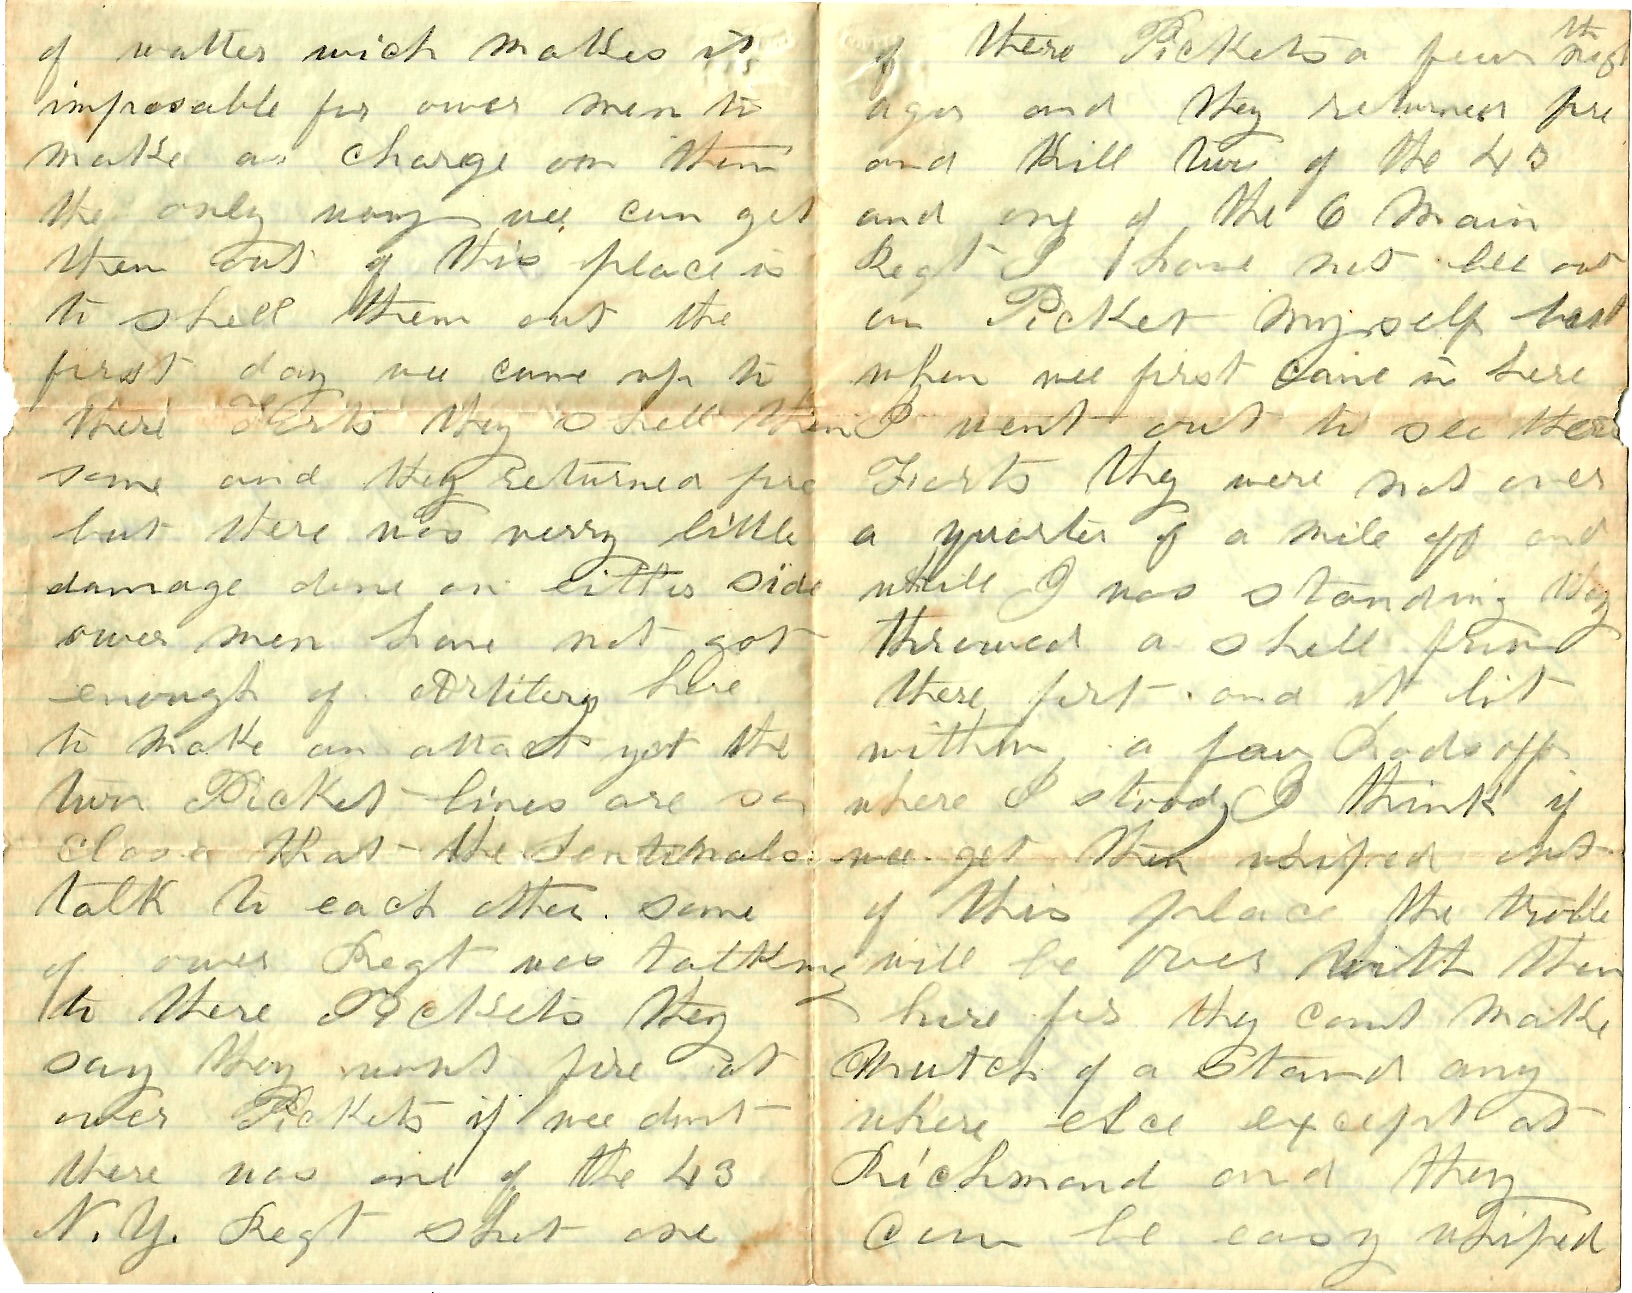 of watter wich makes it
imposable for ower men to
make a charge on them
the only way wee can get
them out of this place is
to shell them out the
first day wee came up to
there Forts they shell them
some and they returned fire
but there was verry little
damage done on either side
ower men have not got
enough of Artilery here
to make an attact yet the
two Picket lines are so
close that the Sentinals
talk to each other. some
of ower Regt was talking
to there Pickets they
say they wont fire at
ower Pickets if wee dont
there was one of the 43
N.Y. Regt shot one
of there Pickets a few
ago and they returned fire
and kill two of the 43
and one of the 6 Main
Regt I have not bee out
on Picket myself but
when wee first came in here
I went out to see there
Forts they were not over
a quarter of a mile off and
while I was standing they
throwed a shell from
there fort and it lit
within a few Rods off
where I stood I think if
wee get them whiped out
of this place the troble
will be over with them
here for they cant make
mutch of a stand any
where elce except at
Richmond and they
can be easy whiped